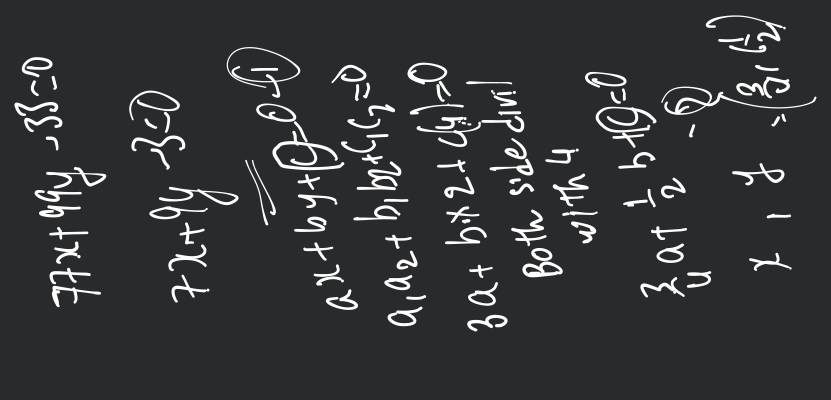 77x+99y-33=0
7x+9y-3=0
ax+by+c=0-①
a₁a₂+b₁b₂+c₁c₂=0
3a+b×2+c(4)=0
Both side divil
with 4
3/4 a+ 1/2 b+c=0
-②
x, y = (3/4, 1/2)